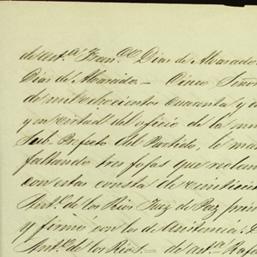 de asta. Fran.co Dias de Alvarado
Dias de Alvarado — Cinco Seño
de mil ochocientos cuarenta y
y en virtud del oficio de la
Sub. Prefecto del Partido, le
faltando tres fojas que
con estas consta de veintici
Ant.o de los Rios Juez de Paz
y firmó con los de asistencia.
Ant.o de los Rios. — de asta. Rafa